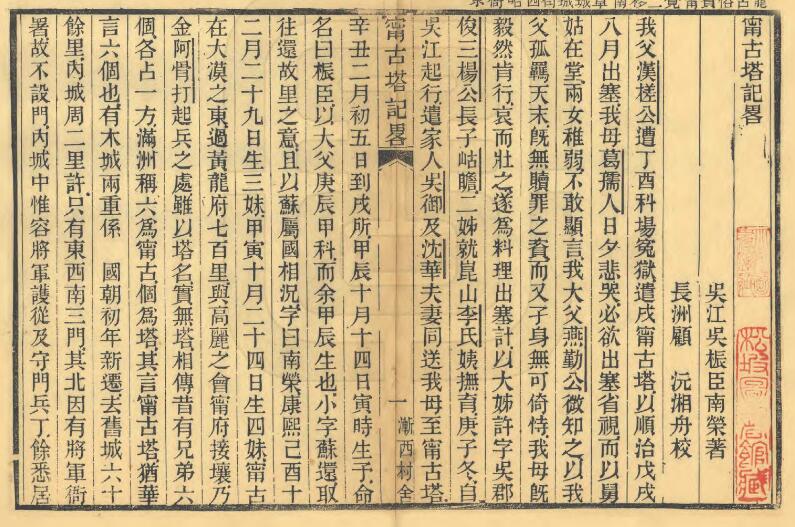 甯古塔記畧
吳江吳桭臣南榮著
長洲顧　沅湘舟校
我父漢槎公遭丁酉科場寃獄遣戍甯古塔以順治戊戌
八月出塞我母葛孺人日夕悲哭必欲出塞省視而以舅
姑在堂兩女稚弱不敢顯言我大父燕勤公微知之以我
父孤羈天末旣無贖罪之資而又子身無可倚恃我母旣
毅然肯行哀而壯之遂爲料理出塞計以大姊許字吳郡
俊三楊公長子岵瞻二姊就崑山李氏姨撫育庚子冬自
吳江起行遣家人吳御及沈華夫妻同送我母至甯古塔
甯古塔記畧
一
漸西村舍
辛丑二月初五日到戍所甲辰十月十四日寅時生予命
名曰桭臣以大父庚辰甲科而余甲辰生也小字蘇還取
往還故里之意且以蘇屬國相況字曰南榮康熙己酉十
二月二十九日生三妹甲寅十月二十四日生四妹甯古
在大漠之東過黃龍府七百里與高麗之會甯府接壤乃
金阿骨打起兵之處雖以塔名實無塔相傳昔有兄弟六
個各占一方滿洲稱六爲甯古個爲塔其言甯古塔猶華
言六個也有木城兩重係　國朝初年新遷去舊城六十
餘里內城周二里許只有東西南三門其北因有將軍衙
署故不設門內城中惟容將軍護從及守門兵丁餘悉居